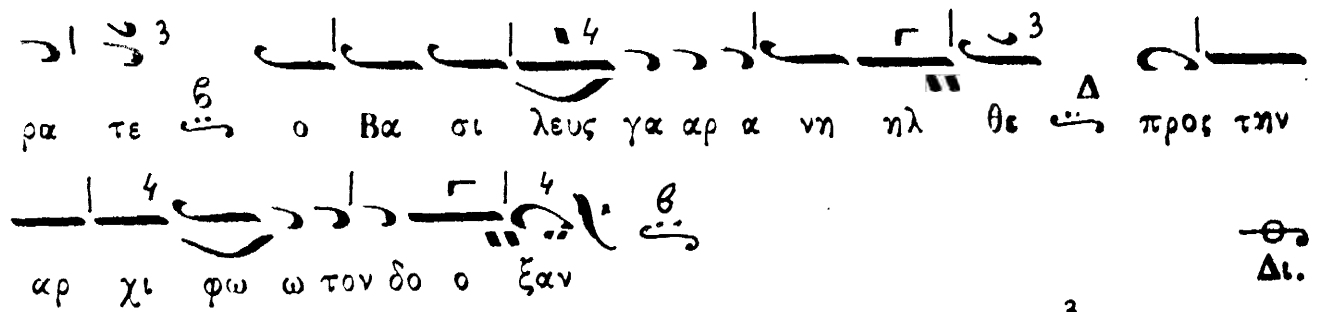 3 4 Γ 3
ρα τε β ο Βα σι λευς γα αρ α νη ηλ θε Δ προς την
4 Γ 4
αρ χι φω ω τον δο ο ξαν β Δι.